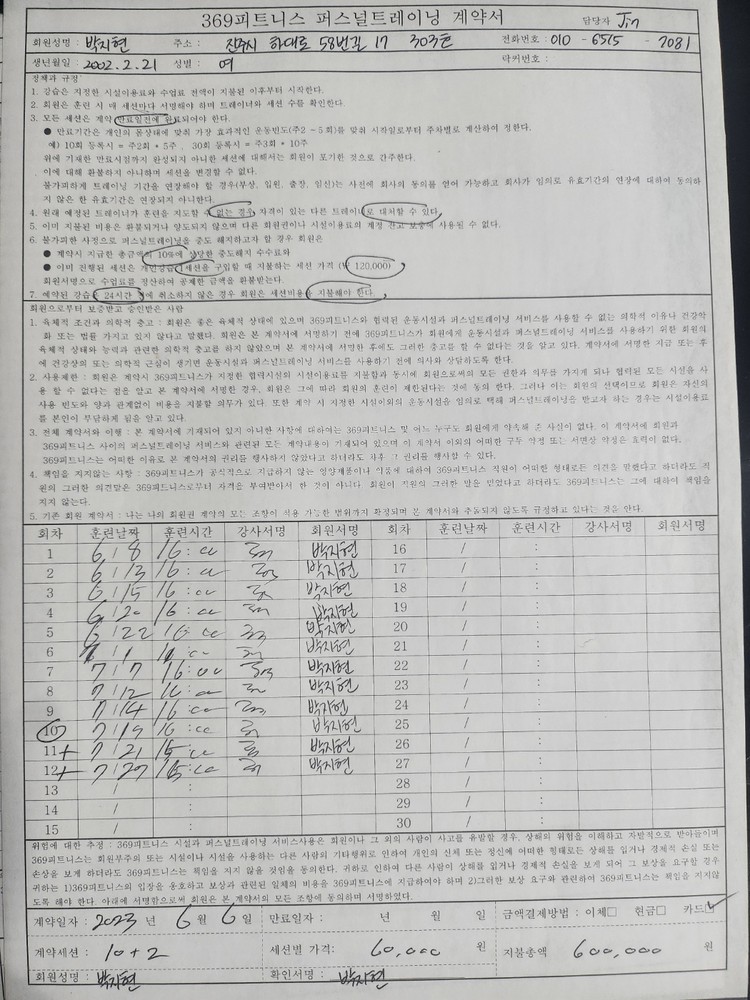 369피트니스 퍼스널트레이닝 계약서 담당자 Jin
회원성명 : 박지현 주소 : 진주시 하대로 58번길 17 303호 전화번호 : 010 - 6515 - 7081
생년월일 : 2002.2.21 성별 : 여 락커번호 :
정책과 규정
1. 강습은 지정한 시설이용료와 수업료 전액이 지불된 이후부터 시작한다.
2. 회원은 훈련 시 매 세션마다 서명해야 하며 트레이너와 세션 수를 확인한다.
3. 모든 세션은 계약 만료일전에 완료되어야 한다.
● 만료기간은 개인의 몸상태에 맞춰 가장 효과적인 운동빈도(주2 - 5회)를 맞춰 시작일로부터 주차별로 계산하여 정한다.
예) 10회 등록시 = 주2회 * 5주 , 30회 등록시 = 주3회 * 10주
위에 기재한 만료시점까지 완성되지 아니한 세션에 대해서는 회원이 포기한 것으로 간주한다.
이에 대해 환불하지 아니하며 세션을 변경할 수 없다.
불가피하게 트레이닝 기간을 연장해야 할 경우(부상, 입원, 출장, 임신)는 사전에 회사의 동의를 얻어 가능하고 회사가 임의로 유효기간의 연장에 대하여 동의하
지 않은 한 유효기간은 연장되지 아니한다.
4. 원래 예정된 트레이너가 훈련을 지도할 수 없는 경우 자격이 있는 다른 트레이너로 대처할 수 있다.
5. 이미 지불된 비용은 환불되거나 양도되지 않으며 다른 회원권이나 시설이용료의 계정 잔고 보충에 사용될 수 없다.
6. 불가피한 사정으로 퍼스널트레이닝을 중도 해지하고자 할 경우 회원은
● 계약시 지급한 총금액의 10%에 상당한 중도해지 수수료와
● 이미 진행된 세션은 개인강습 1세션을 구입할 때 지불하는 세션 가격 (₩ 120,000)
회원서명으로 수업료를 정산하여 공제한 금액을 환불받는다.
7. 예약된 강습 24시간 전에 취소하지 않은 경우 회원은 세션비용을 지불해야 한다.
회원으로부터 보증받고 승인받은 사람
1. 육체적 조건과 의학적 충고 : 회원은 좋은 육체적 상태에 있으며 369피트니스와 협력된 운동시설과 퍼스널트레이닝 서비스를 사용할 수 없는 의학적 이유나 건강악
화 또는 법률 가지고 있지 않다고 말했다. 회원은 본 계약서에 서명하기 전에 369피트니스가 회원에게 운동시설과 퍼스널트레이닝 서비스를 사용하기 위한 회원의
육체적 상태와 능력과 관련한 의학적 충고를 하지 않았으며 본 계약서에 서명한 후에도 그러한 충고를 할 수 없다는 것을 알고 있다. 계약서에 서명한 지금 또는 후
에 건강상의 또는 의학적 근심이 생기면 운동시설과 퍼스널트레이닝 서비스를 사용하기 전에 의사와 상담하도록 한다.
2. 사용제한 : 회원은 계약시 369피트니스가 지정한 협력시설의 시설이용료를 지불함과 동시에 회원으로써의 모든 권한과 의무를 가지게 되나 협력된 모든 시설을 사
용 할 수 없다는 점을 알고 본 계약서에 서명한 경우, 회원은 그에 따라 회원의 훈련이 제한된다는 것에 동의 한다. 그러나 이는 회원의 선택이므로 회원은 자신의
사용 빈도와 양과 관계없이 비용을 지불할 의무가 있다. 또한 계약 시 지정한 시설이외의 운동시설을 임의로 택해 퍼스널트레이닝을 받고자 하는 경우는 시설이용료
를 본인이 부담하게 됨을 알고 있다.
3. 전체 계약서와 이행 : 본 계약서에 기재되어 있지 아니한 사항에 대하여는 369피트니스 및 어느 누구도 회원에게 약속해 준 사실이 없다. 이 계약서에 회원과
369피트니스 사이의 퍼스널트레이닝 서비스와 관련된 모든 계약내용이 기재되어 있으며 이 계약서 이외의 어떠한 구두 약정 또는 서면상 약정은 효력이 없다.
369피트니스는 어떠한 이유로 본 계약서의 권리를 행사하지 않았다고 하더라도 차후 그 권리를 행사할 수 있다.
4. 책임을 지지않는 사항 : 369피트니스가 공식적으로 지급하지 않는 영양제품이나 약품에 대하여 369피트니스 직원이 어떠한 형태로든 의견을 말했다고 하더라도 직
원의 그러한 의견말은 369피트니스로부터 자격을 부여받아서 한 것이 아니다. 회원이 직원의 그러한 말을 믿었다고 하더라도 369피트니스는 그에 대하여 책임을
지지 않는다.
5. 기존 회원 계약서 : 나는 나의 회원권 계약의 모든 조항이 적용 가능한 범위까지 확정되며 본 계약서와 충돌되지 않도록 규정하고 있다는 것을 안다.
회차 훈련날짜 훈련시간 강사서명 회원서명 회차 훈련날짜 훈련시간 강사서명 회원서명
1 6/8 16:00 박지현 16 / :
2 6/13 16:00 박지현 17 / :
3 6/15 16:00 박지현 18 / :
4 6/20 16:00 박지현 19 / :
5 6/22 16:00 박지현 20 / :
6 16:00 박지현 21 / :
7 7/7 16:00 박지현 22 / :
8 7/12 16:00 박지현 23 / :
9 7/14 16:00 박지현 24 / :
10 7/19 16:00 박지현 25 / :
11+ 7/21 15:00 박지현 26 / :
12+ 7/27 15:00 박지현 27 / :
13 / : 28 / :
14 / : 29 / :
15 / : 30 / :
위험에 대한 추정 : 369피트니스 시설과 퍼스널트레이닝 서비스사용은 회원이나 그 외의 사람이 사고를 유발할 경우, 상해의 위험을 이해하고 자발적으로 받아들이며
369피트니스는 회원부주의 또는 시설이나 시설을 사용하는 다른 사람의 기타행위로 인하여 개인의 신체 또는 정신에 어떠한 형태로든 상해를 입거나 경제적 손실 또는
손상을 보게 하더라도 369피트니스는 책임을 지지 않을 것임을 동의한다. 귀하로 인하여 다른 사람이 상해를 입거나 경제적 손실을 보게 되어 그 보상을 요구할 경우
귀하는 1)369피트니스의 입장을 옹호하고 보상과 관련된 일체의 비용을 369피트니스에 지급하여야 하며 2)그러한 보상 요구와 관련하여 369피트니스는 책임을 지지않
도록 해야 한다. 아래에 서명함으로써 회원은 본 계약서의 모든 조항에 동의하며 서명하였다.
계약일자 : 2023 년 6 월 6 일 만료일자 : 년 월 일 금액결제방법 : 이체□ 현금□ 카드☑
계약세션 : 10+2 세션별 가격: 60,000 원 지불총액 600,000 원
회원성명 : 박지현 확인서명 : 박지현